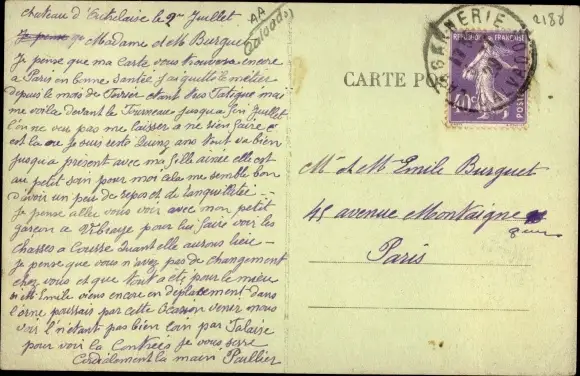 chateau d'Entrelaise le 9me Juillet
Je pense que Madame et M Burguet
Je pense que ma carte vous trouvera encore
a Paris en bonne santée j'ai quitté le métier
depuis le mois de Fevrier etant plus fatigué mai
me voila devant le Fourneau jusqu'a fin Juillet
l'on ne veu pas me laisser a ne rien faire c
est la ou je suis resté quinz ans tout va bien
jusqu'a présent avec ma fille ainée elle est
au petit soin pour moi cela me semble bon
d'avoir un peu de repos et de tanquilitée -
Je pense aller vous voir avec mon petit
garcon a pour lui faire voir les
chasses a Courre quant elle aurons lieu -
Je pense que vous n'avez pas de changement
chez vous et que tout a été pour le mieu
si M Emile viens encore en déplacement dans
l'orne poussais par cette ocasion venez nous
voir l'n'étant pas bien loin par Falaise
pour voir la Contrée je vous serre
Cordialement la main Paillier
CARTE PO
REPUBLIQUE FRANÇAISE
POSTES
2188
Mr et M Emile Burguet
45 avenue Montaigne
8eme
Paris